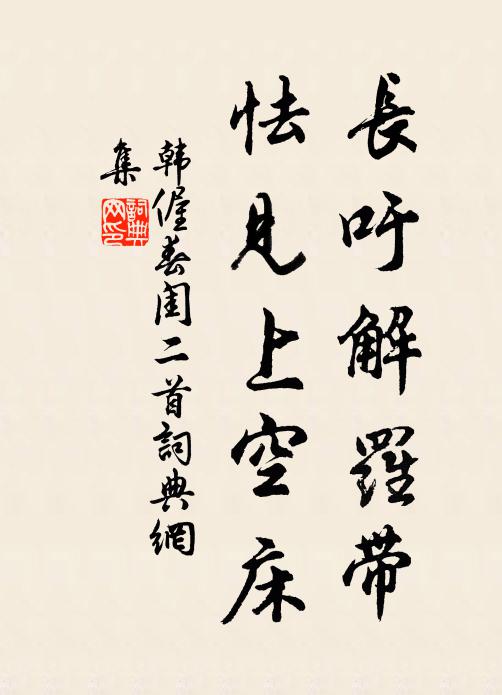 長吁解羅帶
怯見上空床
韩偓春闺二首詞典網
集
詞典
网印